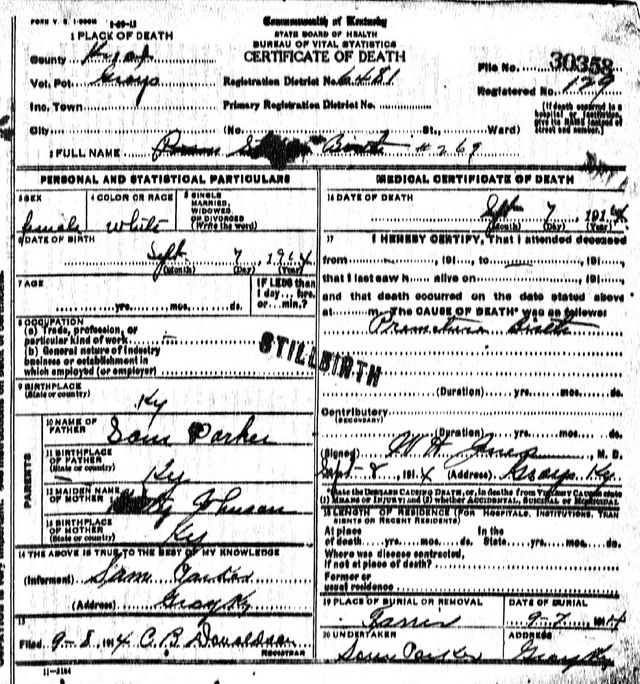 FORM V. S. 1-500M 5-09-13
Commonwealth of Kentucky
STATE BOARD OF HEALTH
BUREAU OF VITAL STATISTICS
CERTIFICATE OF DEATH
1 PLACE OF DEATH
County Knox
Vot. Pct. Grays
Inc. Town
City
Registration District No. 6481
Primary Registration District No.
(No. St., Ward)
File No. 30358
Registered No. 129
(If death occurred in a
hospital or institution,
give its NAME instead of
street and number.)
2 FULL NAME Birth #269
PERSONAL AND STATISTICAL PARTICULARS
3 SEX
female
4 COLOR OR RACE
White
5 SINGLE
MARRIED,
WIDOWED,
OR DIVORCED
(Write the word)
6 DATE OF BIRTH
Sept 7, 1914
(Month) (Day) (Year)
7 AGE
yrs. mos. ds.
IF LESS than
1 day... hrs.
or...min.?
8 OCCUPATION
(a) Trade, profession, or
particular kind of work
(b) General nature of industry
business or establishment in
which employed (or employer)
STILLBIRTH
9 BIRTHPLACE
(State or country)
Ky
PARENTS
10 NAME OF
FATHER
Sam Parker
11 BIRTHPLACE
OF FATHER
(State or country)
Ky
12 MAIDEN NAME
OF MOTHER
Johnson
13 BIRTHPLACE
OF MOTHER
(State or country)
Ky
14 THE ABOVE IS TRUE TO THE BEST OF MY KNOWLEDGE
(Informant) Sam Parker
(Address) Gray Ky
15
Filed 9-8, 1914 C. B. Donaldson
REGISTRAR
11-3184
MEDICAL CERTIFICATE OF DEATH
16 DATE OF DEATH
Sept 7, 1914
(Month) (Day) (Year)
17 I HEREBY CERTIFY, That I attended deceased
from, 191..., to, 191...,
that I last saw h... alive on, 191...,
and that death occurred on the date stated above
at m. The CAUSE OF DEATH was as follows:
Premature Birth
(Duration) yrs. mos. ds.
Contributory
(SECONDARY)
(Duration) yrs. mos. ds.
(Signed) W. H. Jones, M. D.
Sept 8, 1914 (Address) Grays Ky.
*State the DISEASE CAUSING DEATH, or, in deaths from VIOLENT CAUSES state
(1) MEANS OF INJURY; and (2) whether ACCIDENTAL, SUICIDAL or HOMICIDAL
18 LENGTH OF RESIDENCE (FOR HOSPITALS, INSTITUTIONS, TRAN
SIENTS OR RECENT RESIDENTS)
At place of death yrs. mos. ds. In the State yrs. mos. ds.
Where was disease contracted,
if not at place of death?
Former or
usual residence
19 PLACE OF BURIAL OR REMOVAL
DATE OF BURIAL
9-7, 1914
20 UNDERTAKER
Sam Parker
ADDRESS
Gray Ky